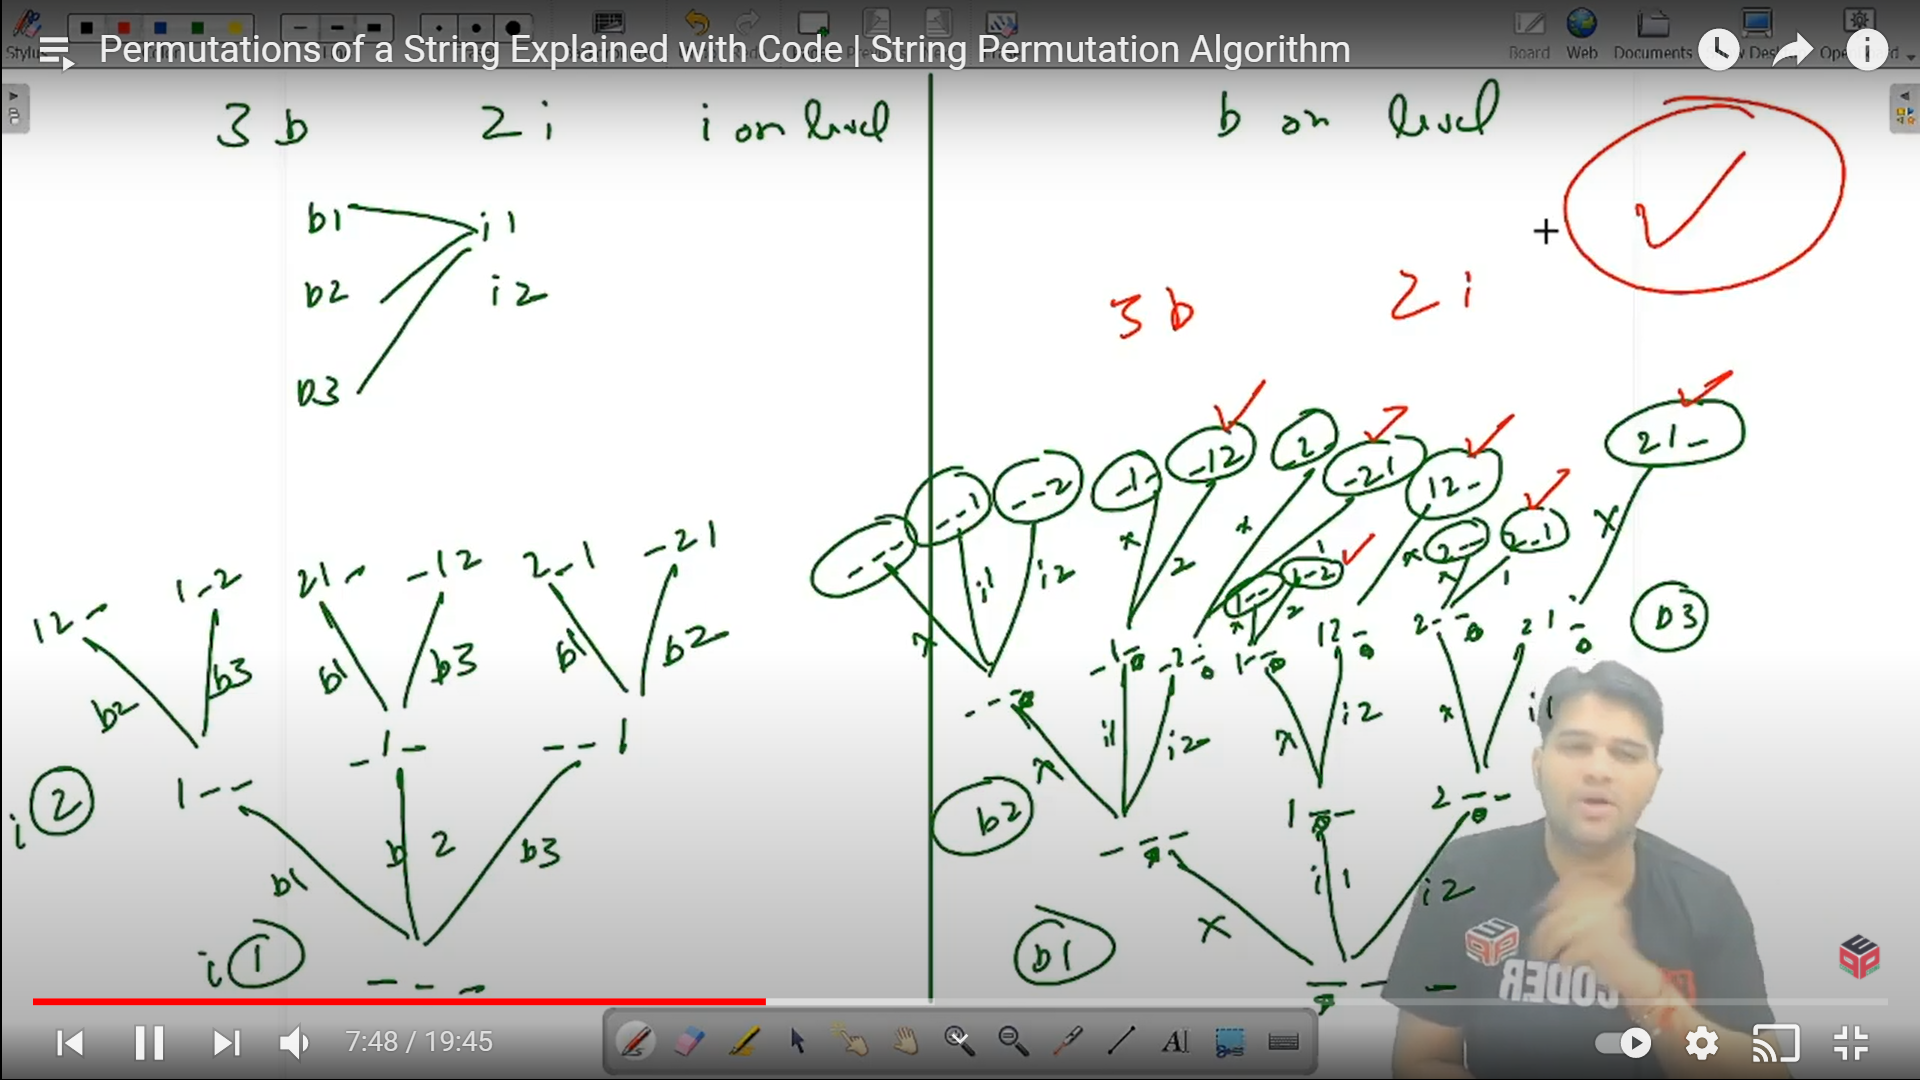 Permutations of a String Explained with Code | String Permutation Algorithm
Board Web Documents
3 b 2 i i on level
b on level
b1 i 1
b2 i 2
b3
3 b 2 i
12 - 1 - 2 21 - - 12 2 - 1 - 21
b2 b3 b1 b3 b1 b2
1 - - - 1 - - - 1
i 2
b1 b 2 b3
i 1
- - -
- - - - - 1 - - 2 - 1 - - 12 - 2 - - 21 12 - 21 -
1 - - 1 - 2 2 - - 2 - 1
x i1 i2 x 2 x 1 x 2 x x 1 x
- - - - 1 - - 2 - 1 - - 12 - 2 - - 21 -
b3
x i1 i2 x i2 x i1
b2
- - - 1 - - 2 - -
x i 1 i 2
b1
- - -
CODER
7:48 / 19:45